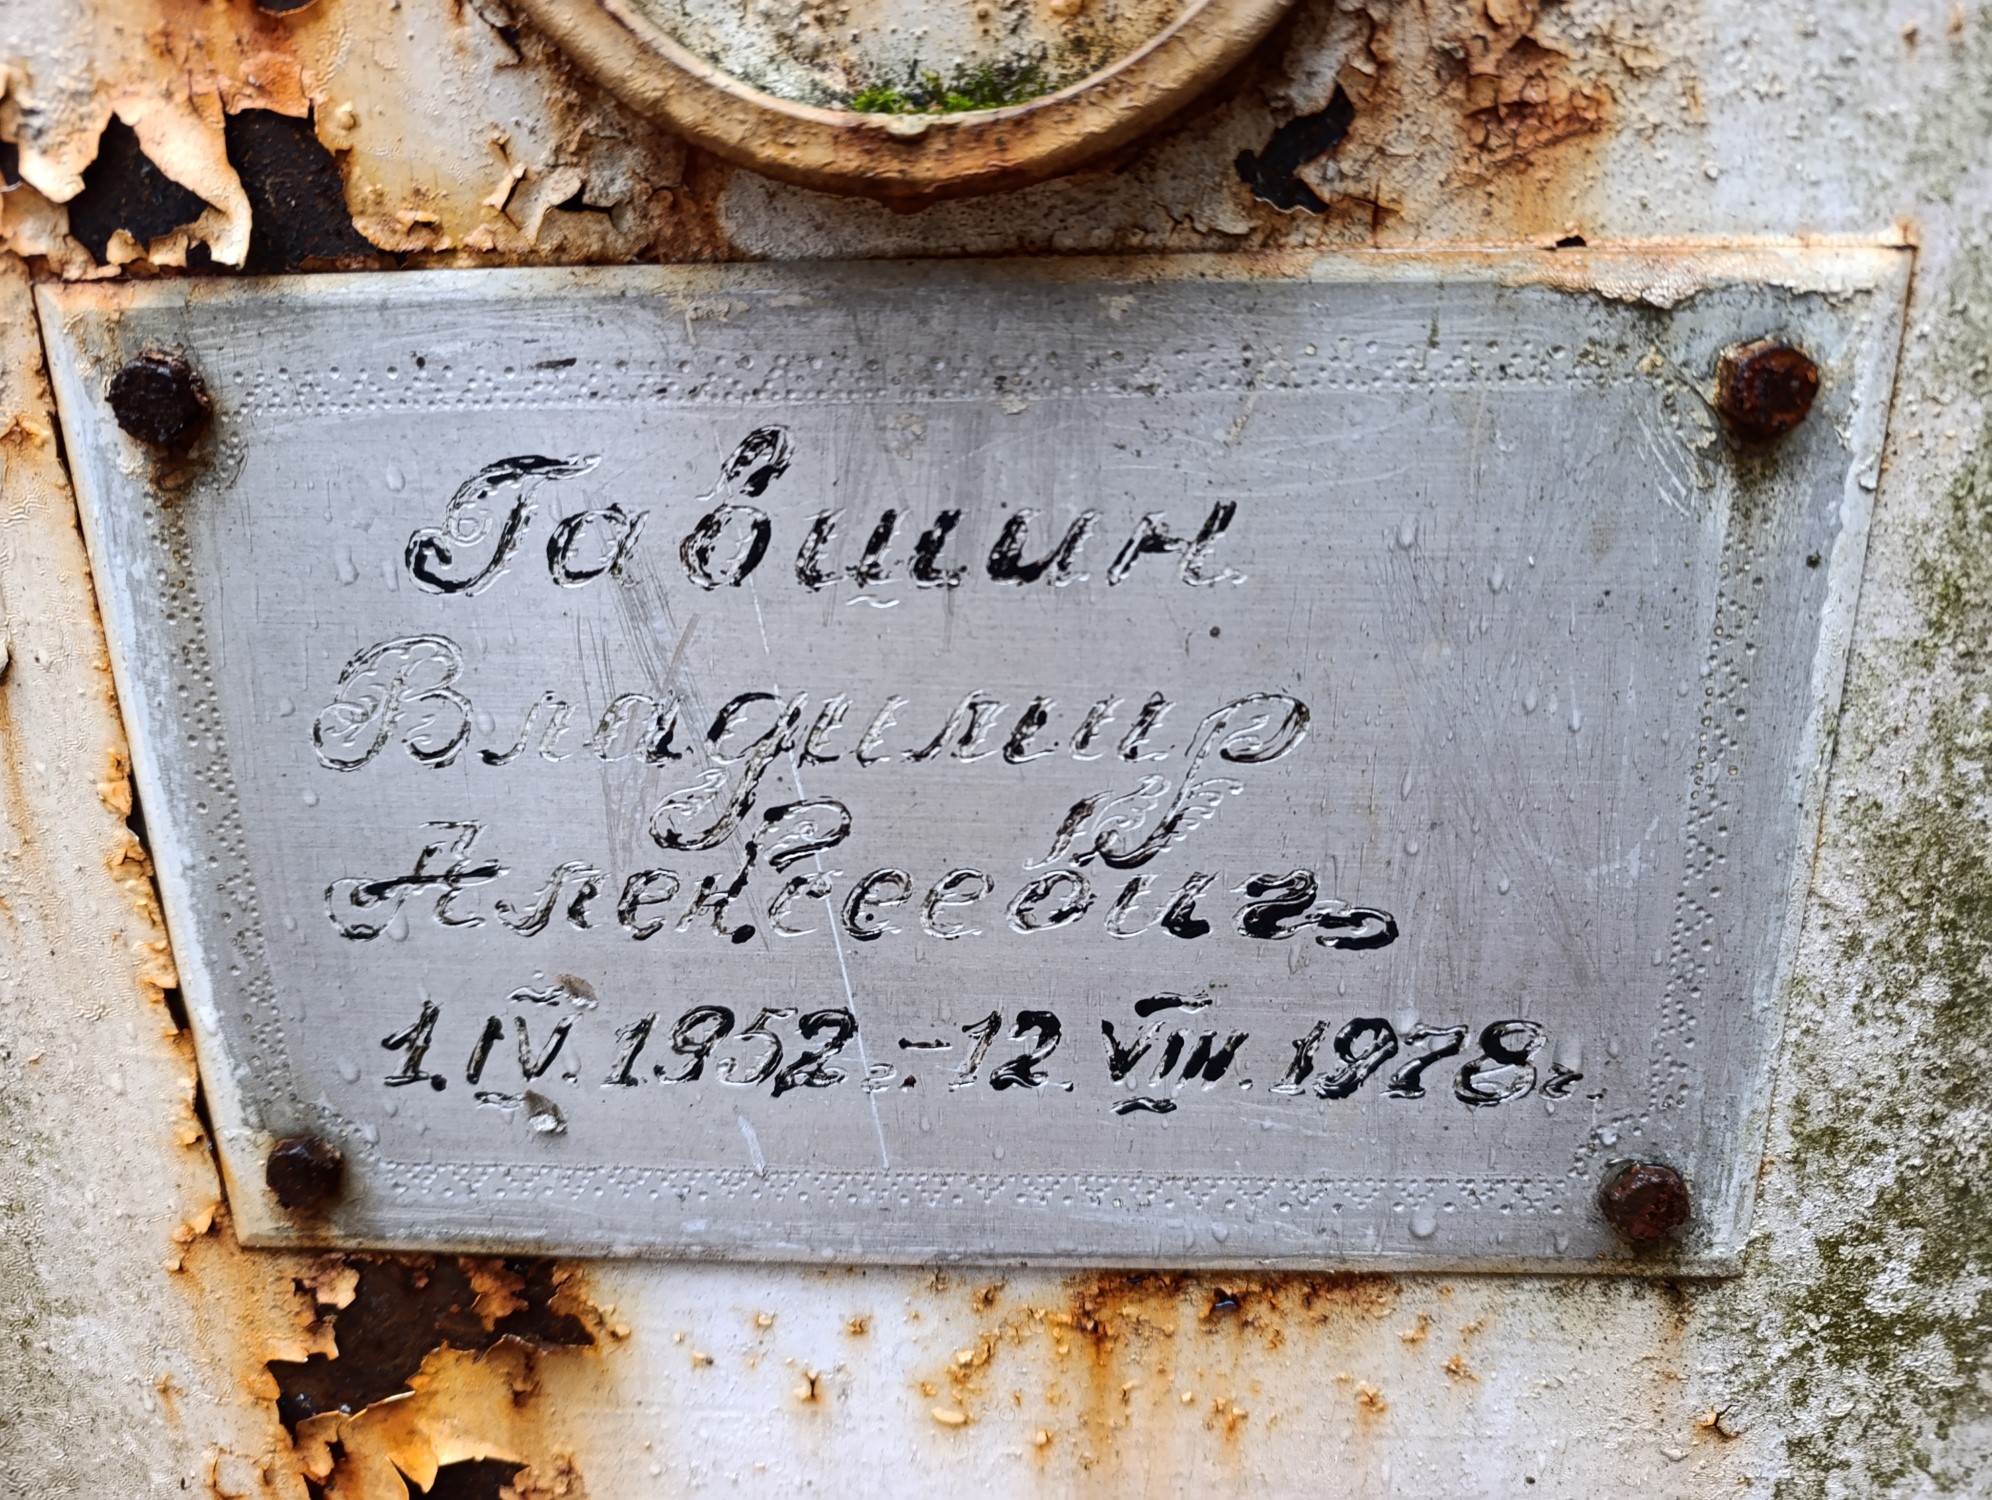 Гавшин
Владимир
Алексеевич
1.IV.1952г.-12.VIII.1978г.